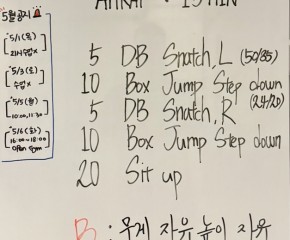 5월 공지 🚨
AMRAP · 15 MIN
*5/1 (목)
*5/3 (토)
수업x
*5/5 (월)
10:00, 11:30
*5/6 (화)
16:00~18:00
Open Gym
5 DB Snatch, L (50/35)
10 Box Jump Step down
5 DB Snatch, R (24/20)
10 Box Jump Step down
20 Sit up
B : 무게 자유 높이 자유